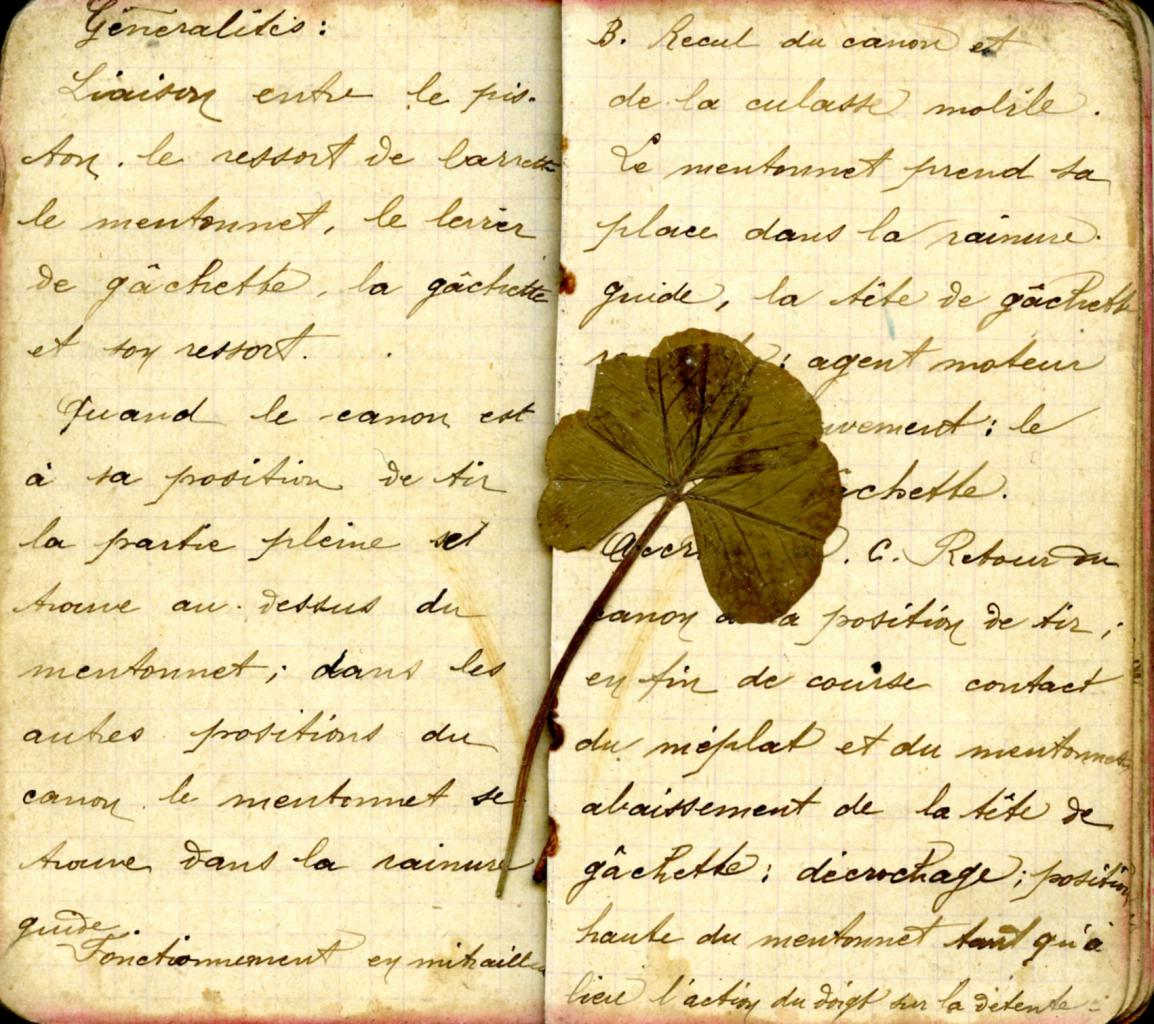 Généralités :
Liaison entre le pis-
ton, le ressort de larrette
le mentonnet, le levier
de gâchette, la gâchette
et son ressort.
Quand le canon est
à sa position de tir
la partie pleine se
trouve au-dessus du
mentonnet ; dans les
autres positions du
canon le mentonnet se
trouve dans la rainure
guide.
Fonctionnement en mitraille
B. Recul du canon et
de la culasse mobile.
Le mentonnet prend sa
place dans la rainure-
guide, la tête de gâchette
: agent moteur
vement : le
âchette.
Accr . C. Retour du
canon à la position de tir ;
en fin de course contact
du méplat et du mentonnet
abaissement de la tête de
gâchette ; décrochage ; position
haute du mentonnet tant qu'à
lieu l'action du doigt sur la détente.